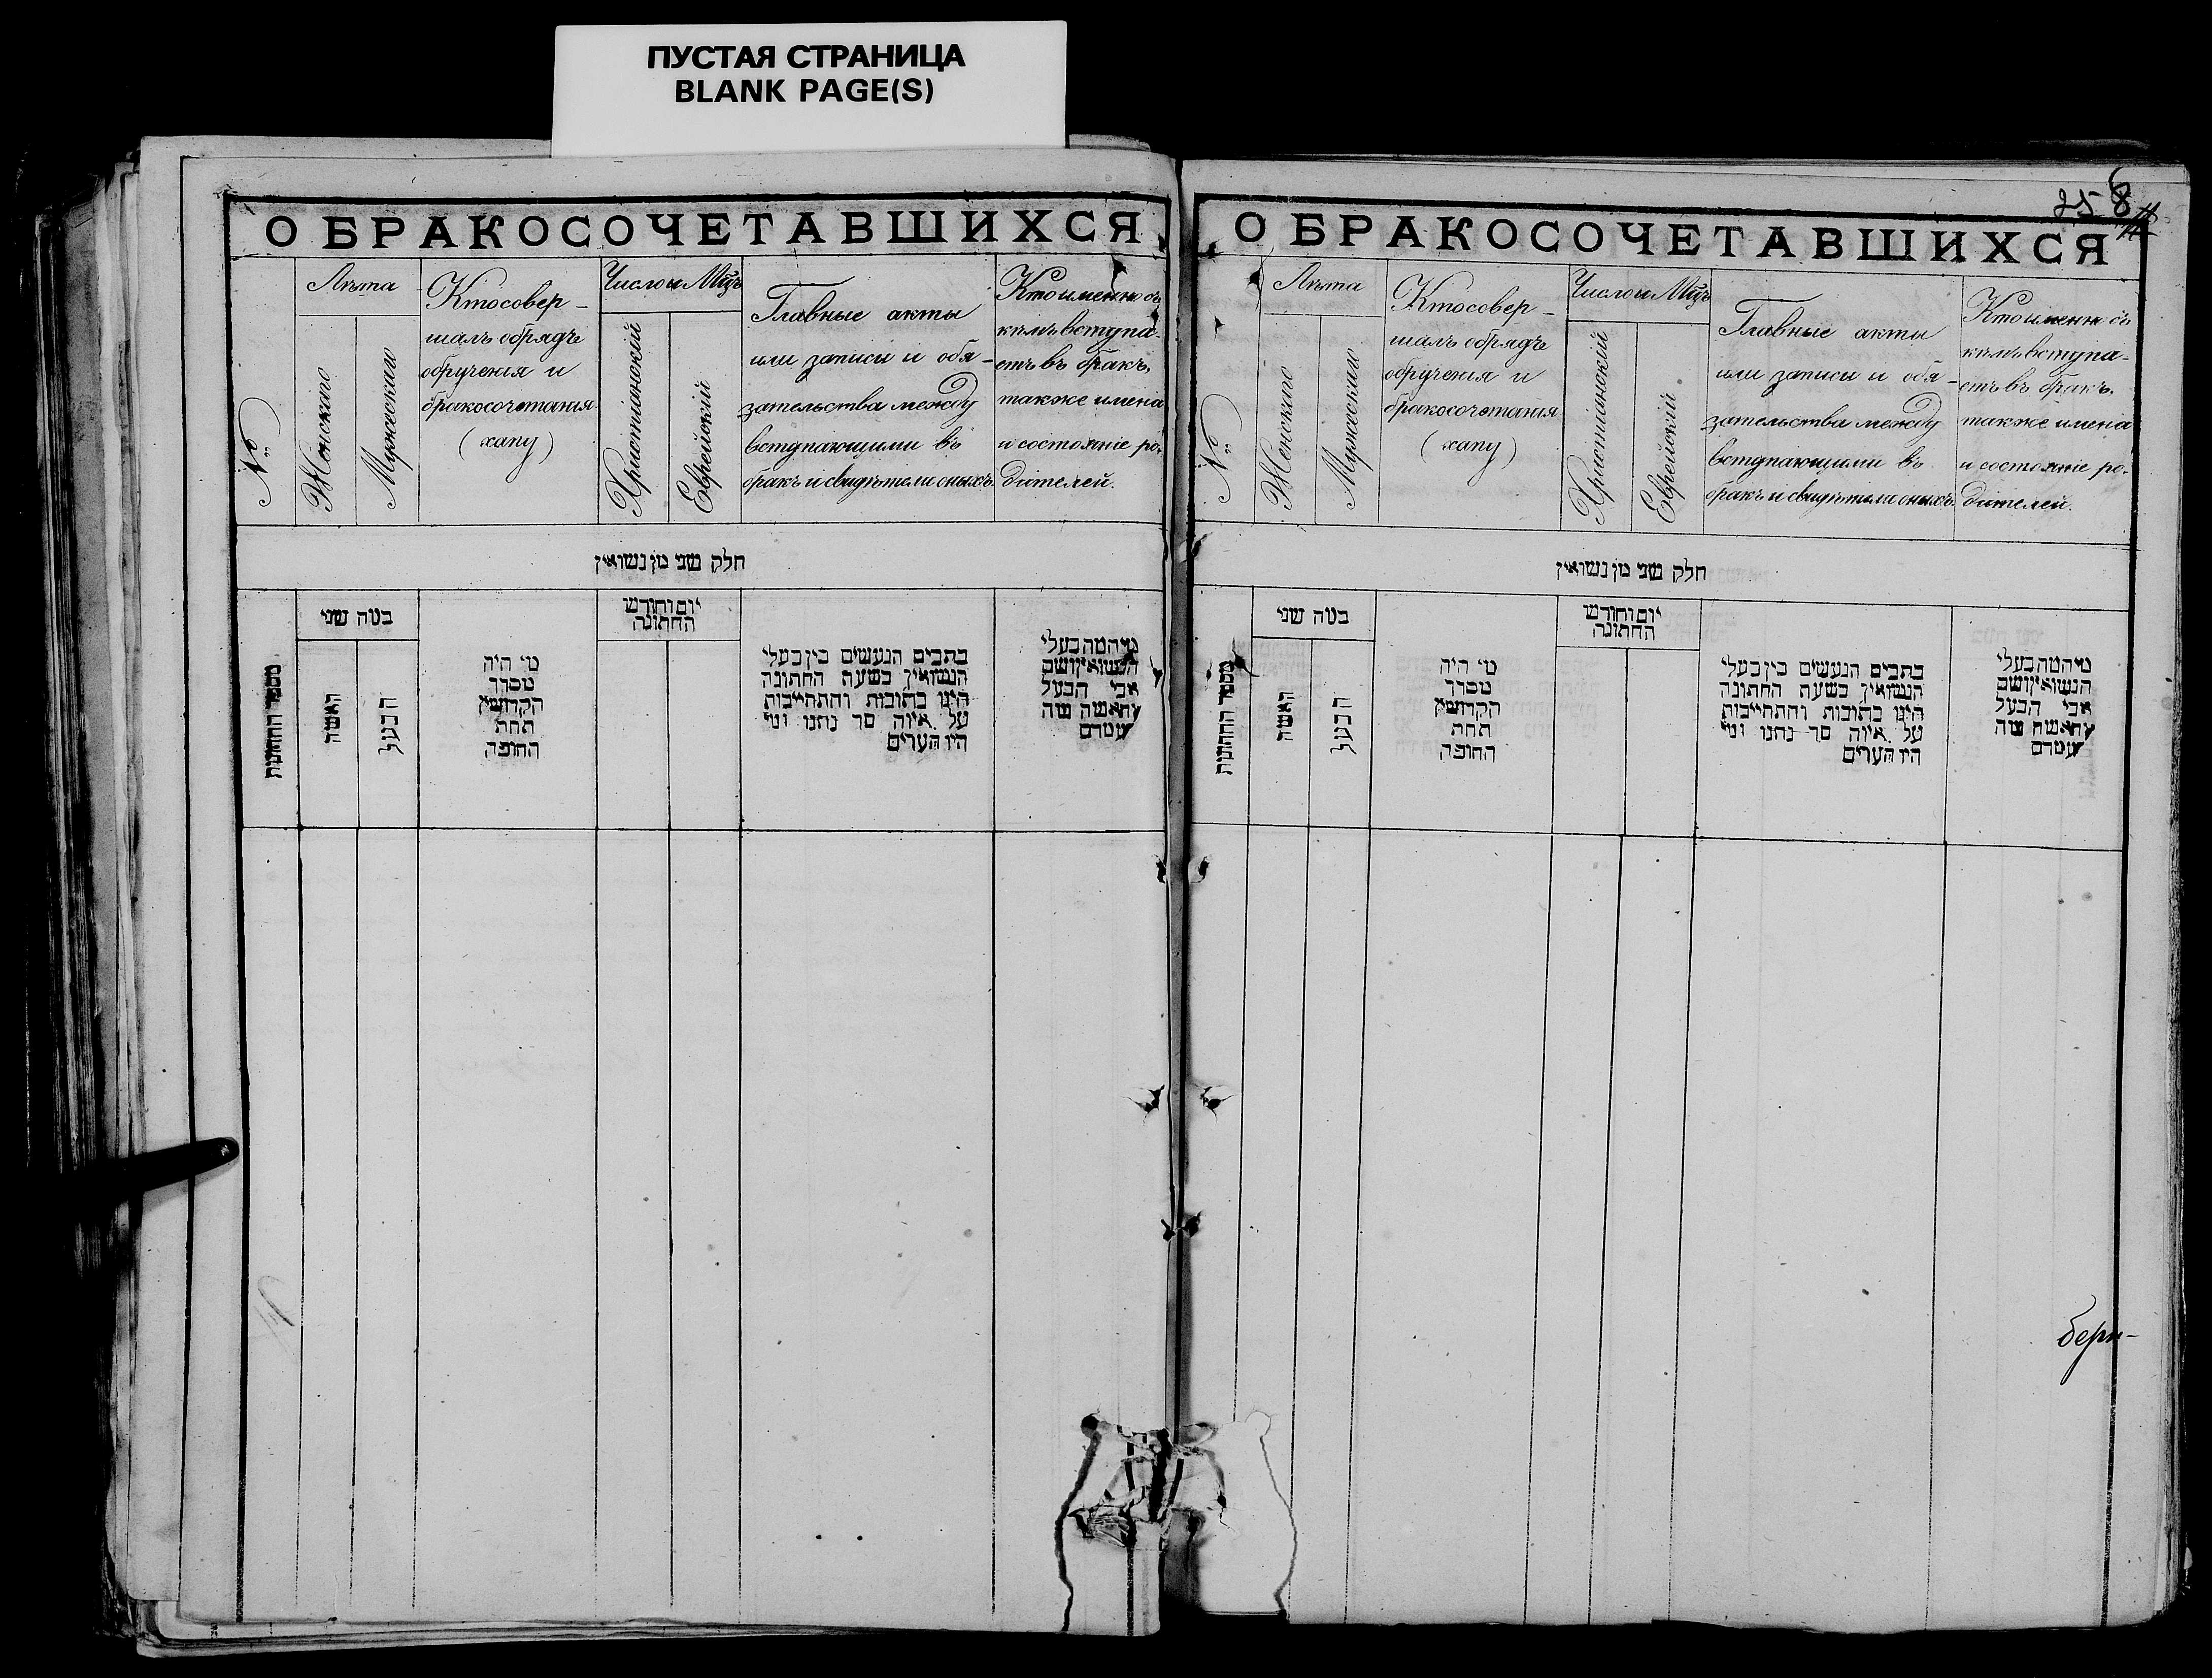 ПУСТАЯ СТРАНИЦА
BLANK PAGE(S)
О БРАКОСОЧЕТАВШИХСЯ
№
Лѣта
Женскаго
Мужескаго
Кто совер-
шалъ обрядъ
обрученія и
бракосочетанія
(хапу)
Число и Мѣцъ
Христіанскій
Еврейскій
Главные акты
или записи и обя-
зательства между
вступающими въ
бракъ и свидѣтели оныхъ.
Кто именно съ
кѣмъ вступа-
етъ въ бракъ,
также имена
и состояніе ро-
дителей.
חלק שני מן נשואין
מספר החתונות
במה שני
האשה
הבעל
מי היה
מסדר
הקדושין
תחת
החופה
יום וחודש
החתונה
כתבים הנעשים בין בעלי
הנשואין בשעת החתונה
היינו כתובות והתחייבות
על איזה סך נתנו ומי
היו העדים
מי המה בעלי
הנשואין ושם
אבי הבעל
והאשה מה
מעמדם
258
О БРАКОСОЧЕТАВШИХСЯ
№
Лѣта
Женскаго
Мужескаго
Кто совер-
шалъ обрядъ
обрученія и
бракосочетанія
(хапу)
Число и Мѣцъ
Христіанскій
Еврейскій
Главные акты
или записи и обя-
зательства между
вступающими въ
бракъ и свидѣтели оныхъ.
Кто именно съ
кѣмъ вступа-
етъ въ бракъ,
также имена
и состояніе ро-
дителей.
חלק שני מן נשואין
מספר החתונות
במה שני
האשה
הבעל
מי היה
מסדר
הקדושין
תחת
החופה
יום וחודש
החתונה
כתבים הנעשים בין בעלי
הנשואין בשעת החתונה
היינו כתובות והתחייבות
על איזה סך נתנו ומי
היו העדים
מי המה בעלי
הנשואין ושם
אבי הבעל
והאשה מה
מעמדם